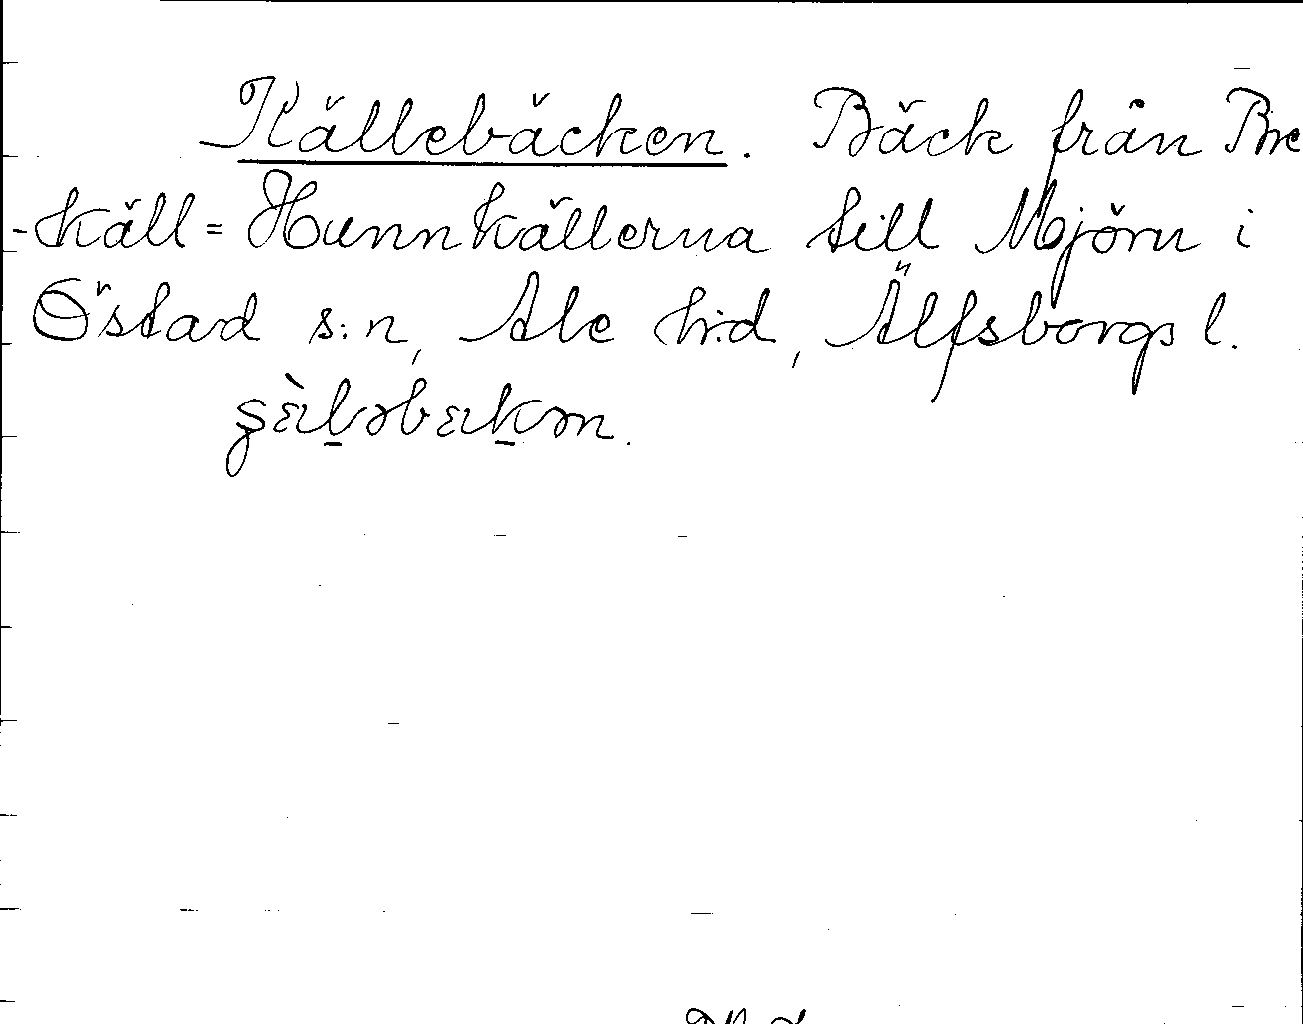 Källebäcken. Bäck från Bre
-käll= Hunnkällerna till Mjörn i
Östad s:n, Ale h:d, Älfsborgs l.